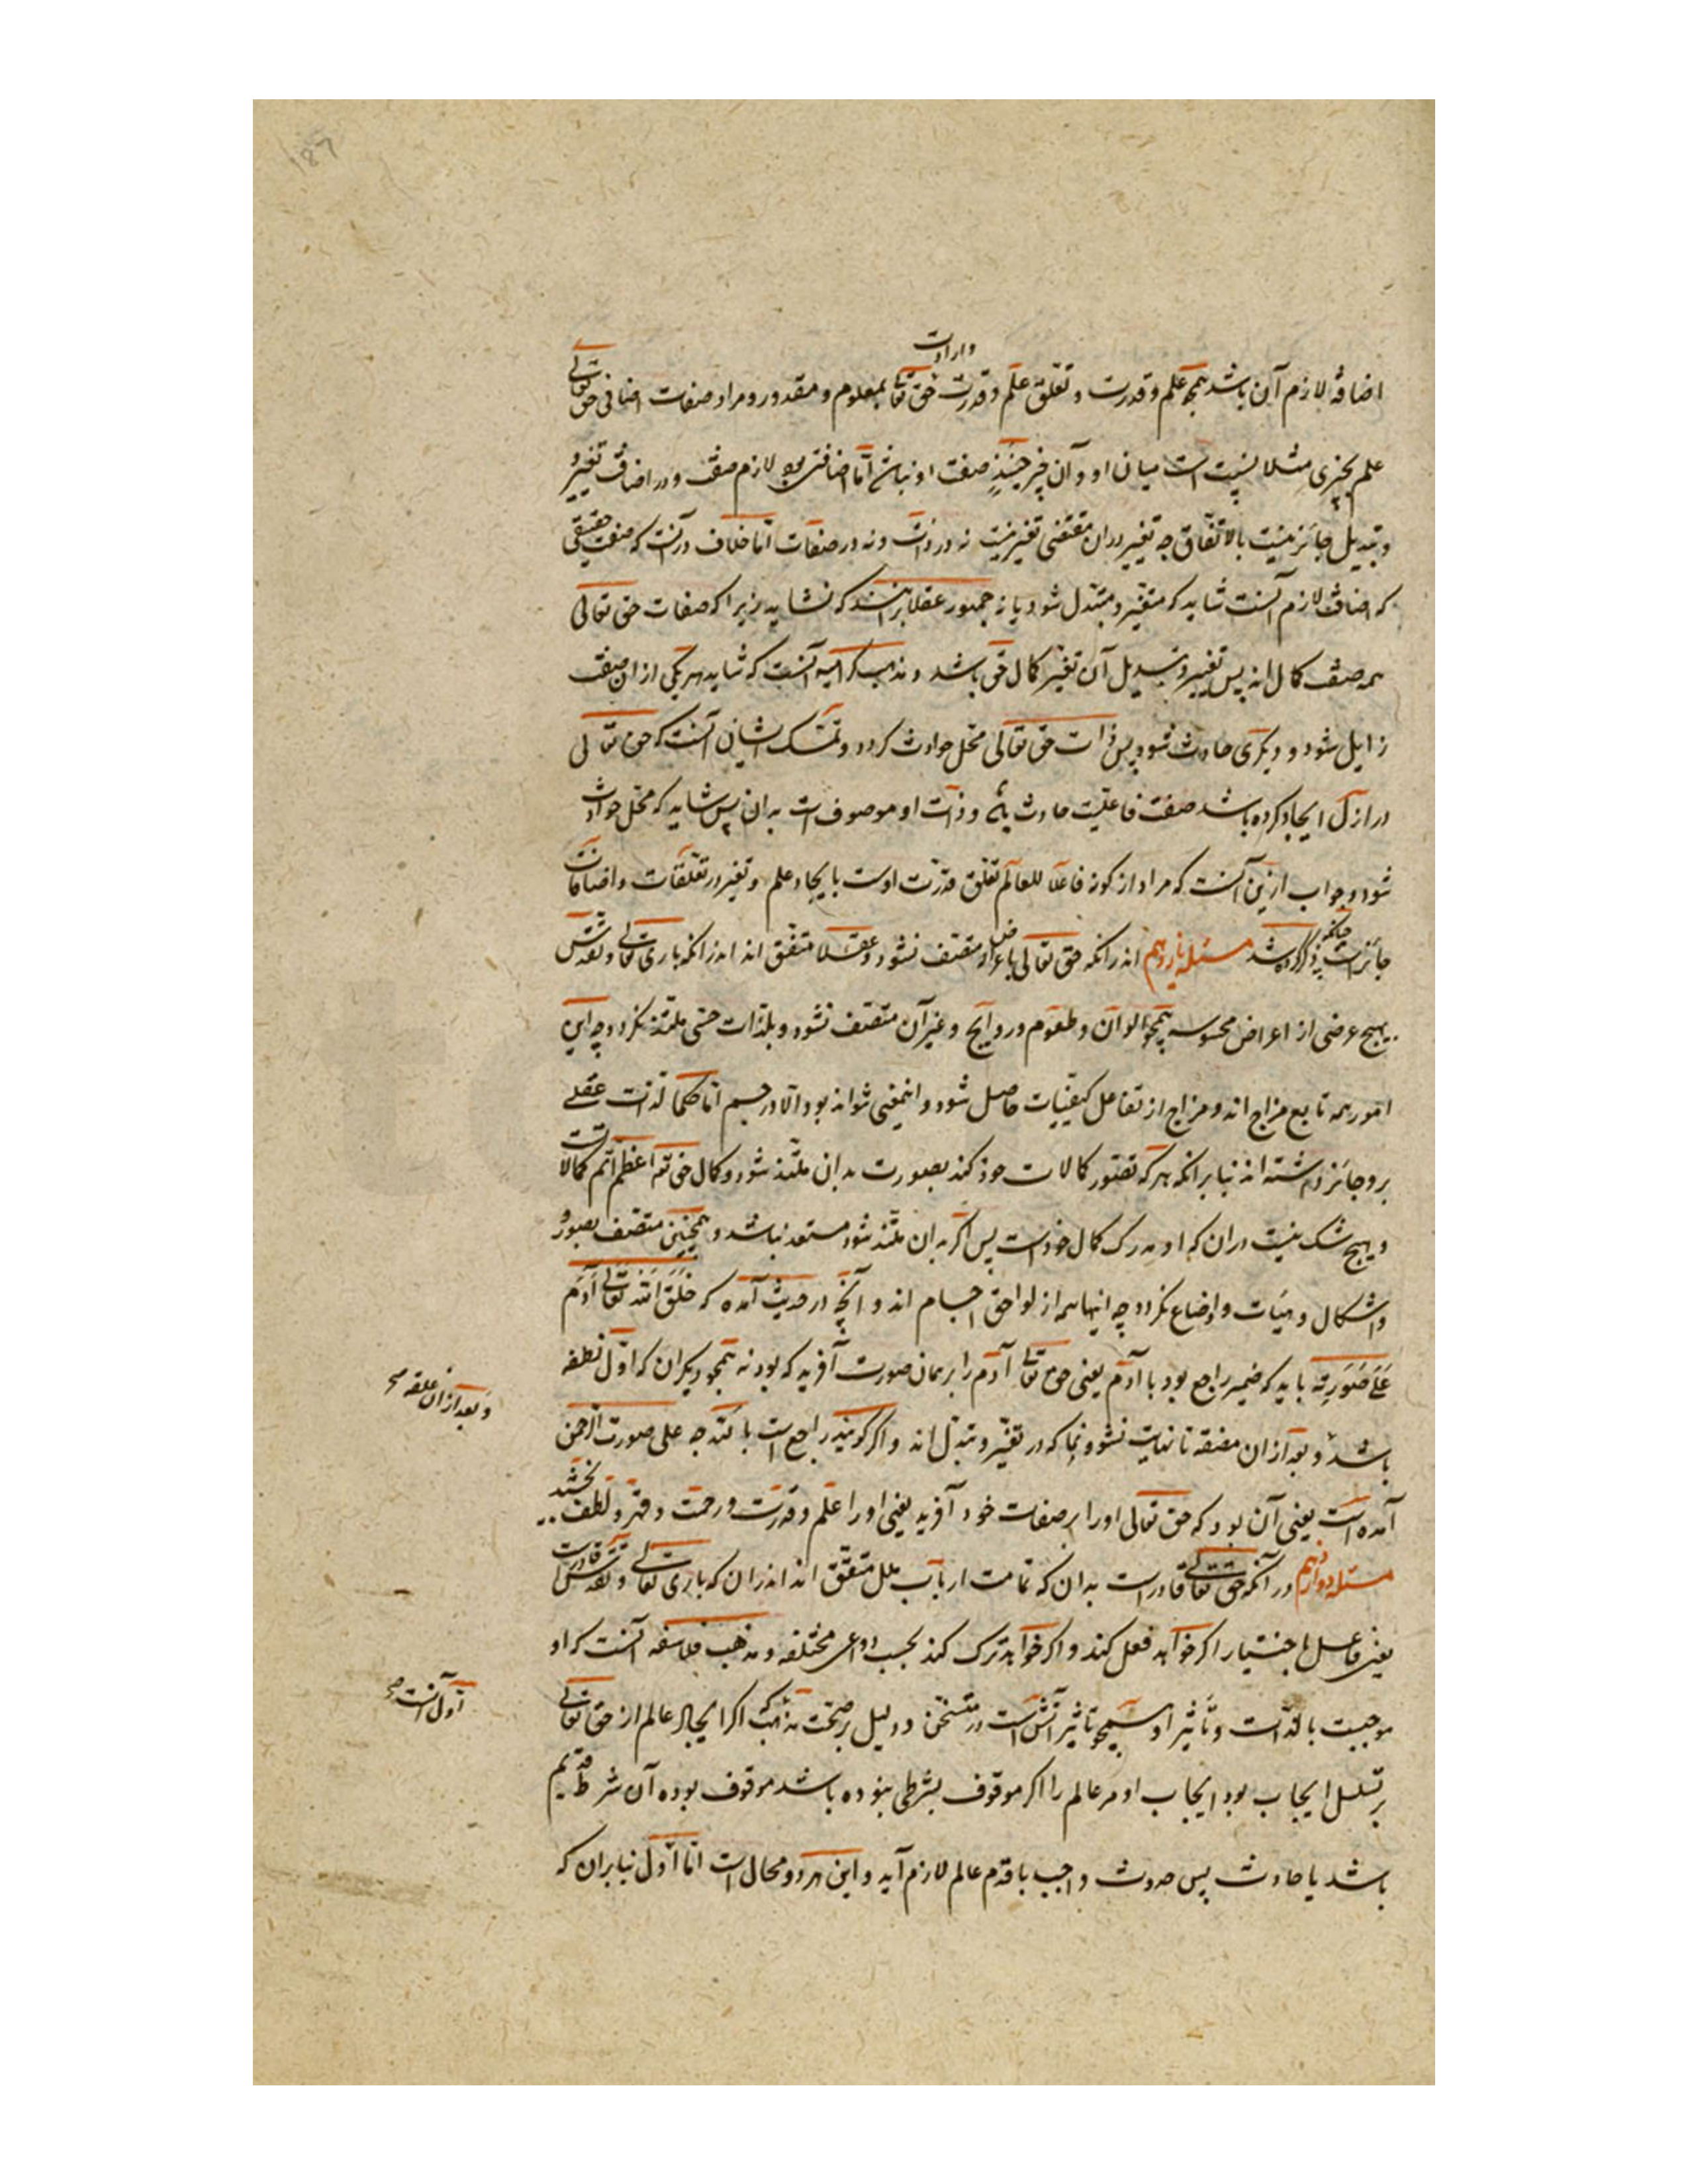 187
اضافهٔ لازم آن باشد همچو علم و قدرت و تعلق علم و قدرت وارادت حق تعالی بمعلوم و مقدور و مراد صفات اضافی حق تعالی
علم بچیزی مثلا نسبتی است میان او و آن چیز حینئذٍ صفت او نباشد اما اضافتی بود لازم صفت و در اضافت تغییر و
و تبدیل جائزست بالاتفاق چه تغییر دران مقتضی تغییر نیست نه در ذات و نه در صفات اما خلاف در آنست که صفت حقیقی
که اضافت لازم آنست شاید که متغیر و متبدل شود یا نه جمهور عقلا برانند که نشاید زیرا که صفات حق تعالی
همه صفت کمال اند پس تغییر و تبدیل آن تغیر کمال حق باشد و مذهب کرامیه آنست که شاید هر یکی از ان صفت
زایل شود و دیگری حادث شود پس ذات حق تعالی محل حوادث کردد و تمسک ایشان آنست که حق تعالی
در ازل ایجاد کرده باشد صفت فاعلیت حادث باشد و ذات او موصوف است بدان پس شاید که محل حوادث
شود و جواب ازین آنست که مراد از کونه فاعلا للعالم تعلق قدرت اوست بایجاد علم و تغیر در تعلقات و اضافات
جائزست چنانکه ذکر کرده شد مسئله یازدهم اندرانکه حق تعالی باعراض متصف نشود و عقلا متفق اند اندرانکه باری تعالی و تقدس
بهیچ عرضی از اعراض محسوسه همچو الوان و طعوم و روایح و غیر آن متصف نشود و بلذات حسی ملتذ نکردد چه این
امور همه تابع مزاج اند و مزاج از تفاعل کیفیات حاصل شود و اینمعنی نتواند بود الا در جسم اما حکما لذت عقلی
برو جائز داشته اند بنابر انکه هر که تصور کمالات خود کند بصورت بدان ملتذ شود و کمال حق تعه اعظم اتم کمالاتست
و هیچ شک نیست دران که او مدرک کمال خودست پس اکر بدان ملتذ شود مستبعد نباشد و همچنین متصف بصور و
واشکال و هیئات و اوضاع نکردد چه اینها همه از لواحق اجسام اند و آنچه در حدیث آمده که خَلَقَ اللّه تَعالی آدَمَ
عَلَی صُورَتِه باید که ضمیر راجع بود با آدم یعنی حق تعالی آدم را بر همان صورت آفرید که بود نه همچو دیکران که اول نطفه
باشد و بعد از ان مضغه تا نهایت نشو و نما که در تغیر و تبدل اند و اکر کویند راجع است با الله چه علی صورت الرحمن
وبعد از ان علقه صح
آمده است یعنی آن بود که حق تعالی او را بر صفات خود آفرید یعنی او را علم و قدرت و رحمت و قهر و لطف بخشد
مسئله دوازدهم در آنکه حق تعالی قادرست بدان که تمامت ارباب ملل متفق اند اندران که باری تعالی و تقدس قادرست
یعنی فاعل باختیار اکر خواهد فعل کند و اکر خواهد ترک کند بحسب دواعی مختلفه و مذهب فلاسفه آنست که او
موجبست بالذات و تأثیر او همچو تاثیر آتش است در تسخن و دلیل بر صحت مذهب اکر ایجاد عالم از حق تعالی
اول آنست صح
بر سبیل ایجاب بود ایجاب او مر عالم را اکر موقوف بشرطی نبوده باشد موقوف بوده آن شرط قدیم
باشد یا حادث پس حدوث واجب یا قدم عالم لازم آید و این هر دو محال است اما اول بنابران که